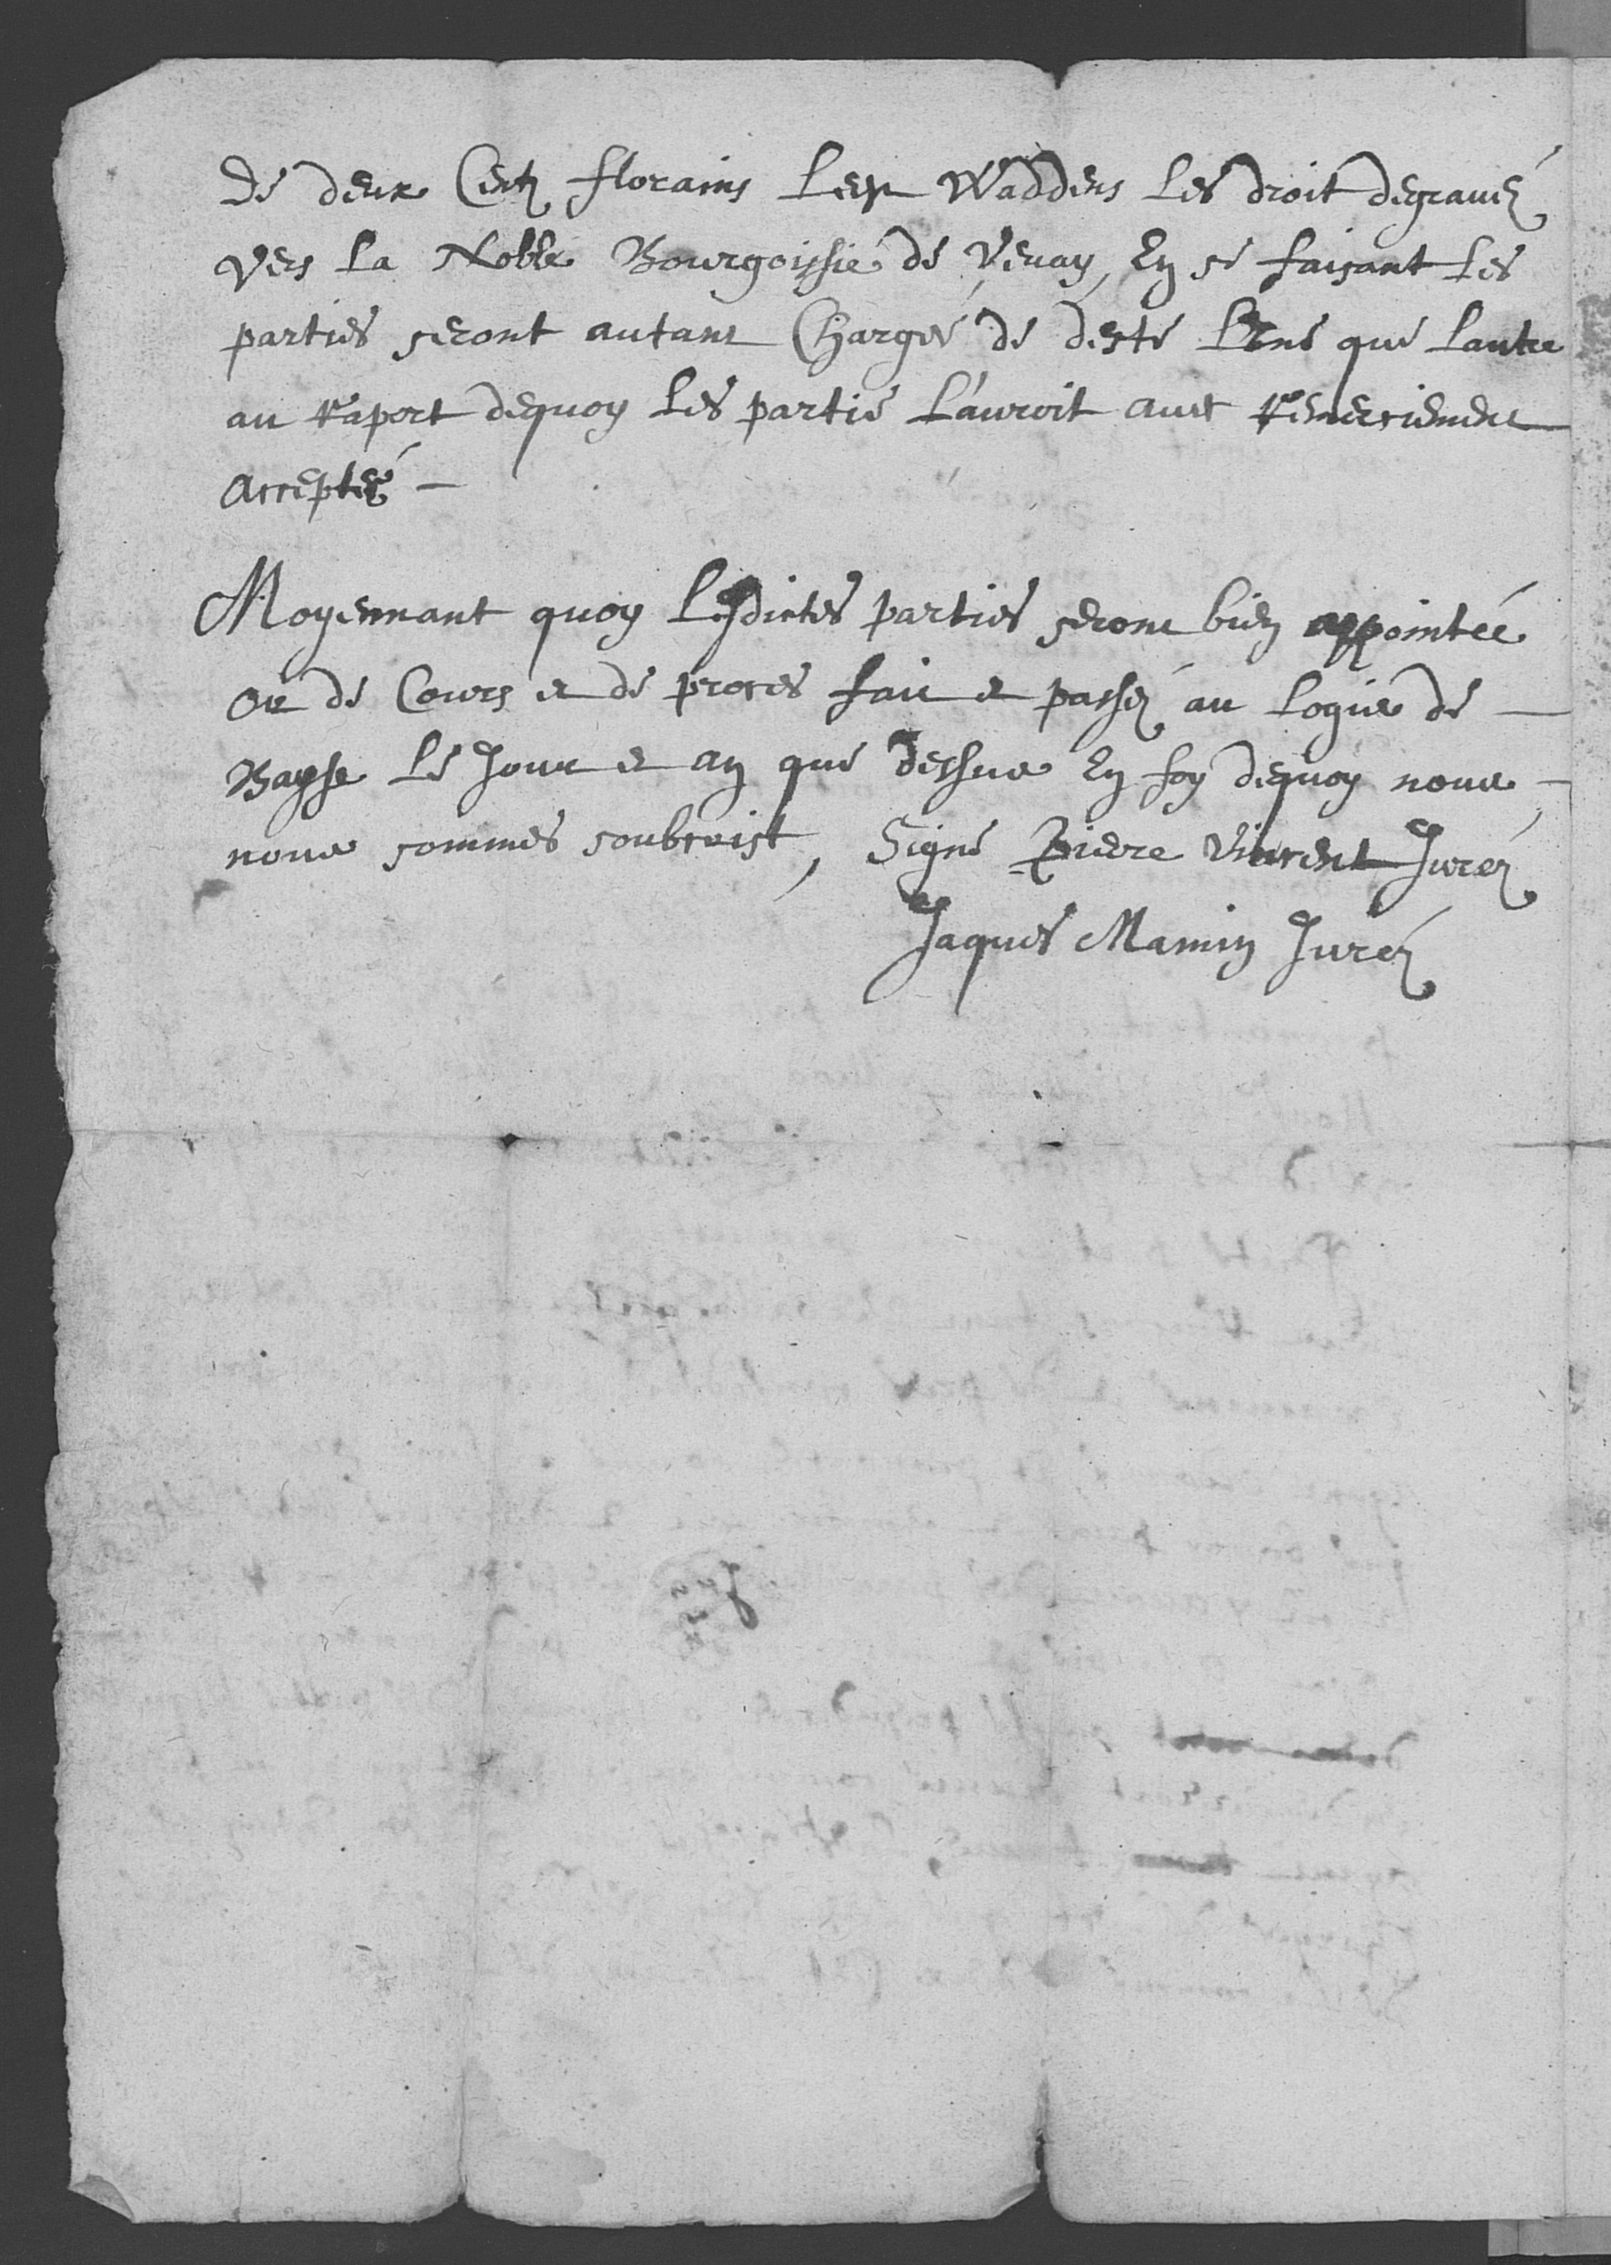 de deux Centz florains Lesp Waddens les droit degravéz
vers la Noble Bourgoissie de Vevay, En se faisant les
parties seront autant Chargeé de deste L'une que lautre
au raport dequoy les partie L'auroit avec remerciement
Acceptéé —
Moyennant quoy lesdictes parties seront bien appointéé
Ou de Cours et de proces fait et passéz au logis de —
Baysse le Jour et an que dessus En foy dequoy nous —
nous sommes soubcrist, Signé Pierre Vincent Juréz
Jaques Mamin Juréz